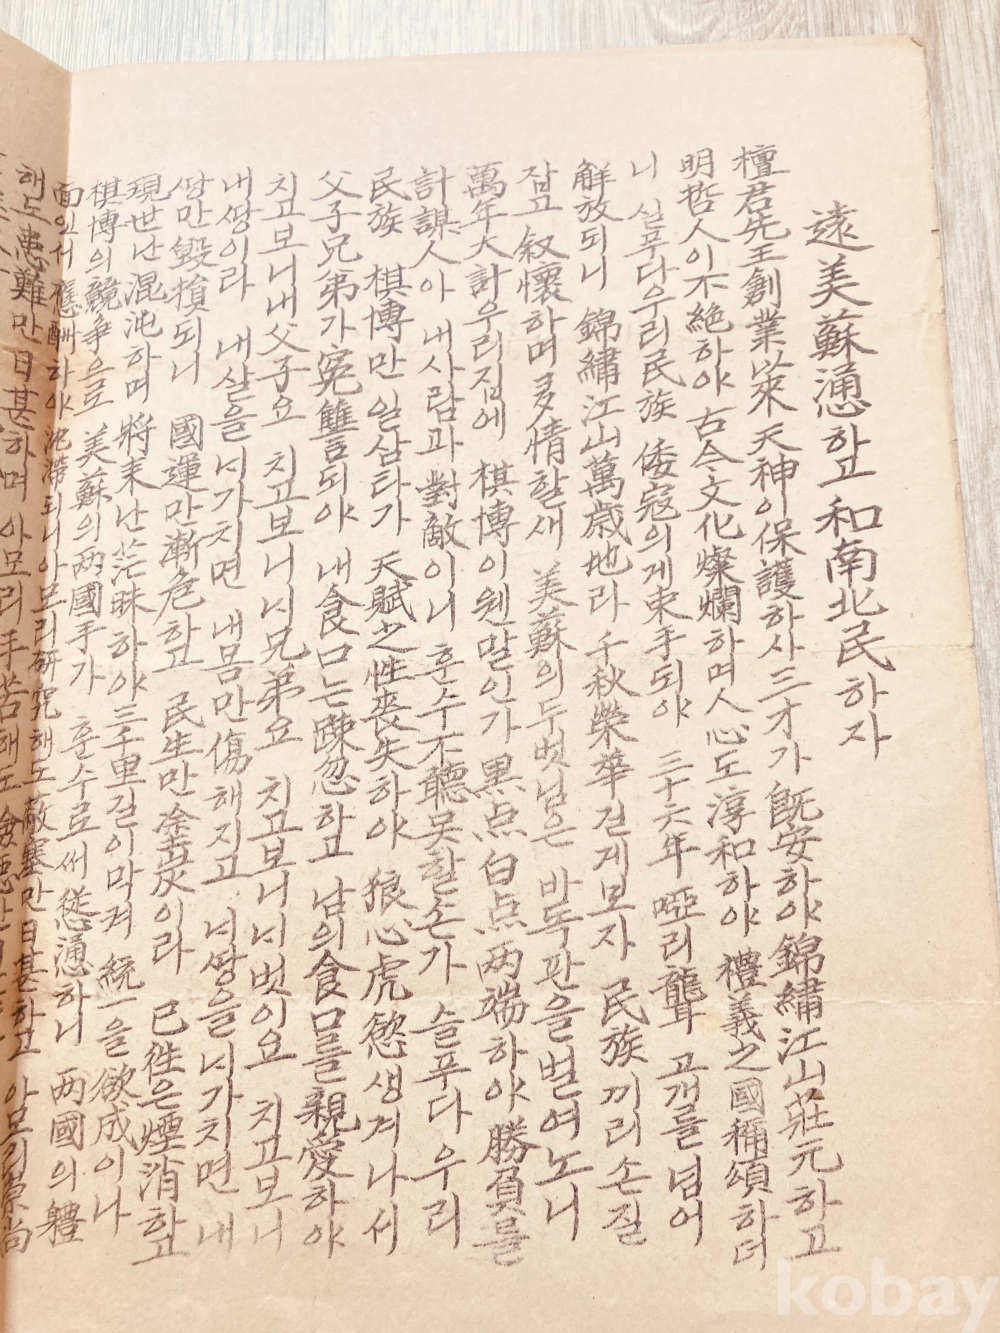 遠美蘇慂하고 和南北民하자
檀君先王創業以來 天神이保護하사 三才가 旣安하야 錦繡江山莊元하고
明哲人이不絶하야 古今文化燦爛하며 人心도 淳和하야 禮義之國稱頌하더
니 실푸다우리民族 倭寇의게束手되야 三十六年 啞리聾 고개를넘어
解放되니 錦繡江山萬歲地라 千秋榮華걷게모자 民族끼리손질
잡고 叙懷하며 多情할새 美蘇의두벗님은 바독판을벌여노니
萬年大計우리집에 棋博이웬말인가 黑点白点两端하야 勝負를
計謀人아 내사람과 對敵이니 훈수不聽못할손가 슬푸다우리
民族 棋博만일삼타가 天賦之性喪失하야 狼心虎慾생겨나서
父子兄弟가寃讐되야 내食口는疎忽하고 남의食口를親愛하야
치고보니내父子요 치고보니너兄弟요 치고보니너벗이요 치고보니
내땅이라 내살을너가치면 내몸만傷해지고 너땅을너가치면 내
땅만毁損되니 國運만漸危하고 民生만塗炭이라 已徃은煙消하고
現世난混沌하며 將来난茫昧하야 三千里길이막켜 統一을欲成이나
棋博의競争으로 美蘇의两國手가 훈수로써慫慂하니 两國의軆
面잇서應酬하야 沈滯되니아모리研究해도蔽塞만日甚하고 아모리崇尚
해도患難만日甚하며 아모리手苦해도